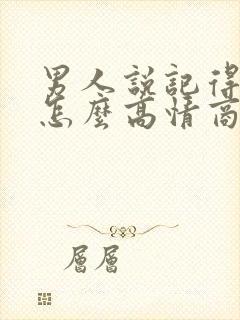 男人說記得
怎麼高情商
層層